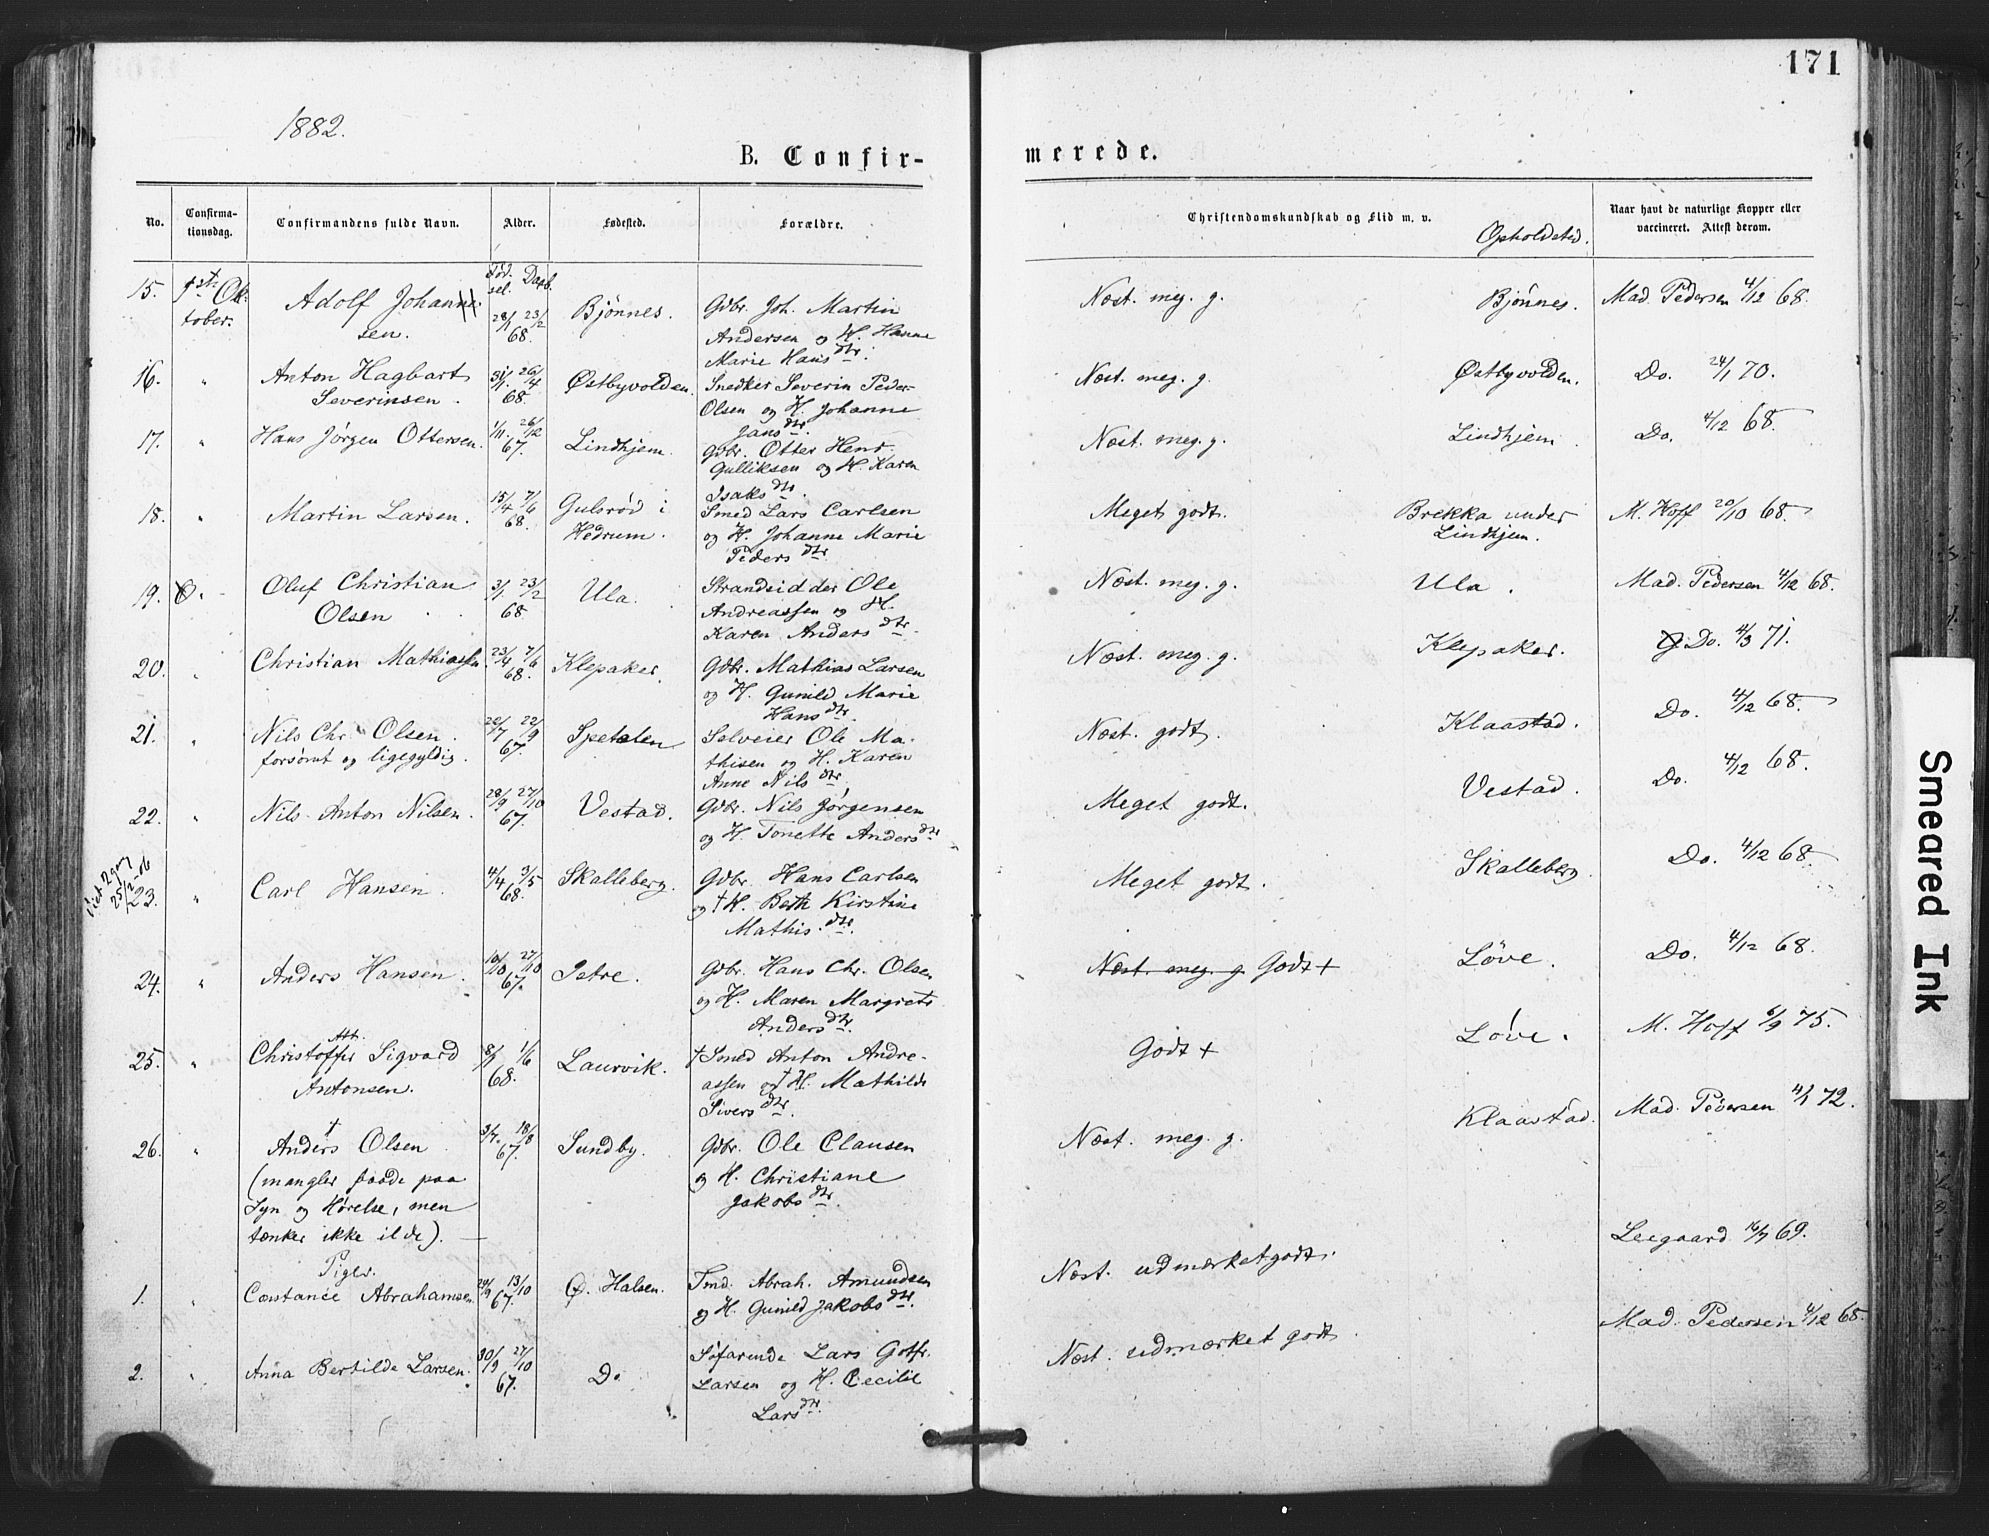 171
1882.
B. Confir- merede.
No. Confirma-tionsdag. Confirmandens fulde Navn. Alder. Fødested. Forældre. Christendomskundskab og Flid m. v. Opholdsted. Naar havt de naturlige Kopper eller vaccineret. Attest derom.
Fød-sel. Daab.
15. 1ste Ok-tober. Adolf Johanne-sen. 28/1 23/2 68. Bjønnes. Gdbr. Joh. Martin
Andersen og H. Hanne
Marie Hansdtr. Næst. meg. g. Bjønnes. Mad. Pedersen 4/12 68.
16. " Anton Hagbart
Severinsen. 31/1. 26/4 68. Østbyvolden. Snedker Severin Peder-
Olsen og H. Johanne
Jansdtr. Næst. meg. g. Østbyvolden. Do. 24/1 70.
17. " Hans Jørgen Ottersen. 1/11. 26/12 67. Lindhjem. Gdbr. Otter Henr.
Gulliksen og H. Karen
Isaksdtr. Næst. meg. g. Lindhjem. Do. 4/12 68.
18. " Martin Larsen. 15/4 7/6 68. Gulsrød i
Hedrum. Smed Lars Carlsen
og H. Johanne Marie
Pedersdtr. Meget godt. Brekka under
Lindhjem. M. Hoff 20/10 68.
19. Oluf Christian
Olsen 3/1. 23/2 68. Ula. Strandsidder Ole
Andreassen og H.
Karen Andersdtr. Næst. meg. g. Ula. Mad. Pedersen 4/12 68.
20. " Christian Mathiassen. 23/4 7/6 68. Klepaker. Gdbr. Mathias Larsen
og H. Gunild Marie
Hansdtr. Næst. meg. g. Klepaker. Do. 4/3 71.
21. " Nils Chr. Olsen.
forsømt og ligegyldig. 22/9 67. Spetalen Selveier Ole Ma-
thisen og H. Karen
Anne Nilsdtr. Næst. godt. Klaastad. Do. 4/12 68.
22. " Nils Anton Nilsen. 28/9 27/10 67. Vestad. Gdbr. Nils Jørgensen
og H. Tonette Andersdtr. Meget godt. Vestad. Do. 4/12 68.
viet 2 gang
25/2-06
23. " Carl Hansen. 4/4 3/5 68. Skalleberg. Gdbr. Hans Carlsen
og † H. Berth Kirstine
Mathis.dtr. Meget godt. Skalleberg. Do. 4/12 68.
24. " Anders Hansen. 10/10 27/10 67. Istre. Gdbr. Hans Chr. Olsen
og H. Maren Margrete
Andersdtr. Næst. meg. g. Godt + Løve. Do. 4/12 68.
25. " Christoffer Sigvard
Antonsen. 1/6 68. Laurvik. † Smed Anton Andre-
assen og † H. Mathilde
Siversdtr. Godt + Løve. M. Hoff 6/9 75.
26. " † Anders Olsen
(mangler baade paa
Syn og Hørelse, men
tænker ikke ilde). 3/7. 18/8 67. Sundby. Gdbr. Ole Clausen
og H. Christiane
Jakobsdtr. Næst. meg. g. Klaastad. Mad. Pedersen 4/1 72.
Piger.
1. " Constance Abrahamsen. 29/9 13/10 67. Ø. Halsen. Tmd. Abrah. Amundsen
og H. Gunild Jakobsdtr. Næst. udmærket godt. Leegaard 16/7 69.
2. " Anna Bertilde Larsen. 30/9 27/10 67. Do Søfarende Lars Gotfr.
Larsen og H. Cecilie
Larsdtr. Næst. udmærket godt. Mad. Pedersen 4/12 68.
Smeared Ink